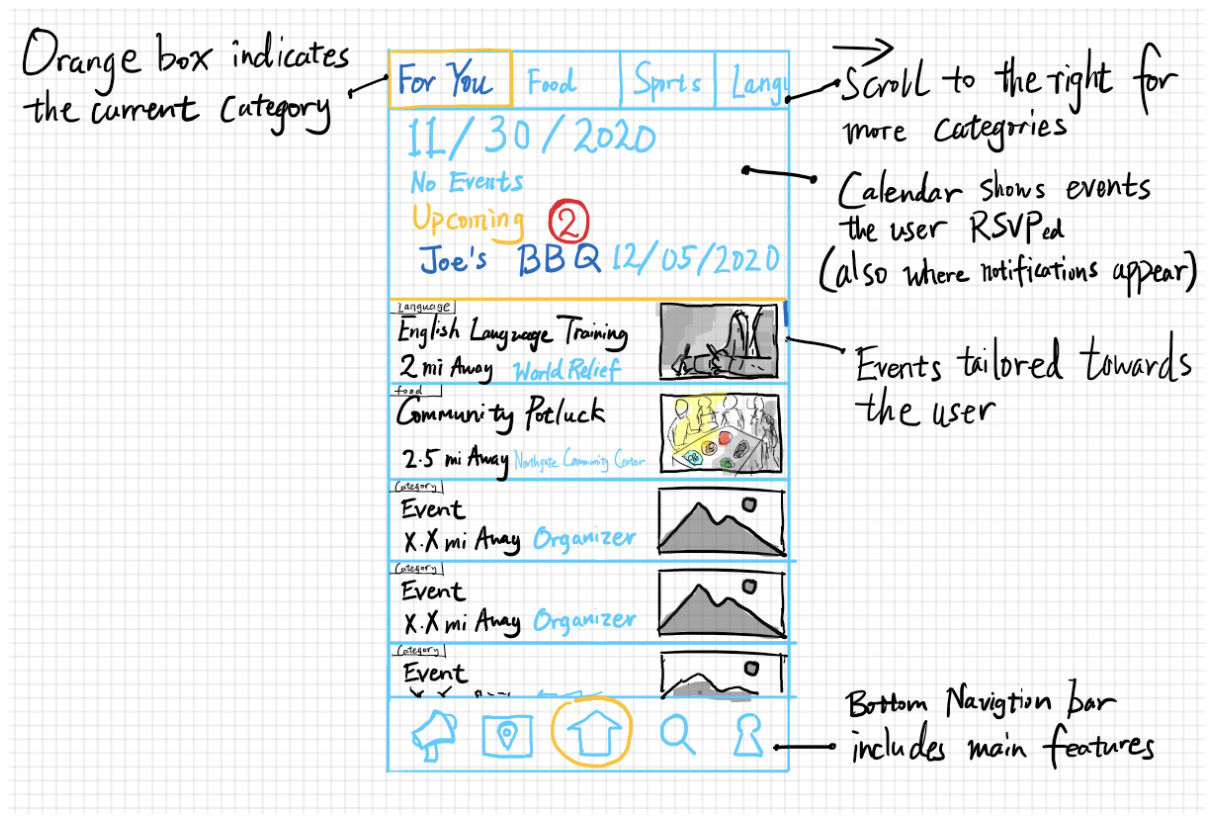 Orange box indicates
the current Category
For You
Food
Sports
Langu
Scroll to the right for
more Categories
11/30/2020
No Events
Upcoming 2
Joe's BBQ 12/05/2020
Calendar shows events
the user RSVPed
(also where notifications appear)
Language
English Language Training
2 mi Away World Relief
Events tailored towards
the user
food
Community Potluck
2.5 mi Away Northgate Community Center
Category
Event
X.X mi Away Organizer
Category
Event
X.X mi Away Organizer
Category
Event
Bottom Navigtion bar
includes main features